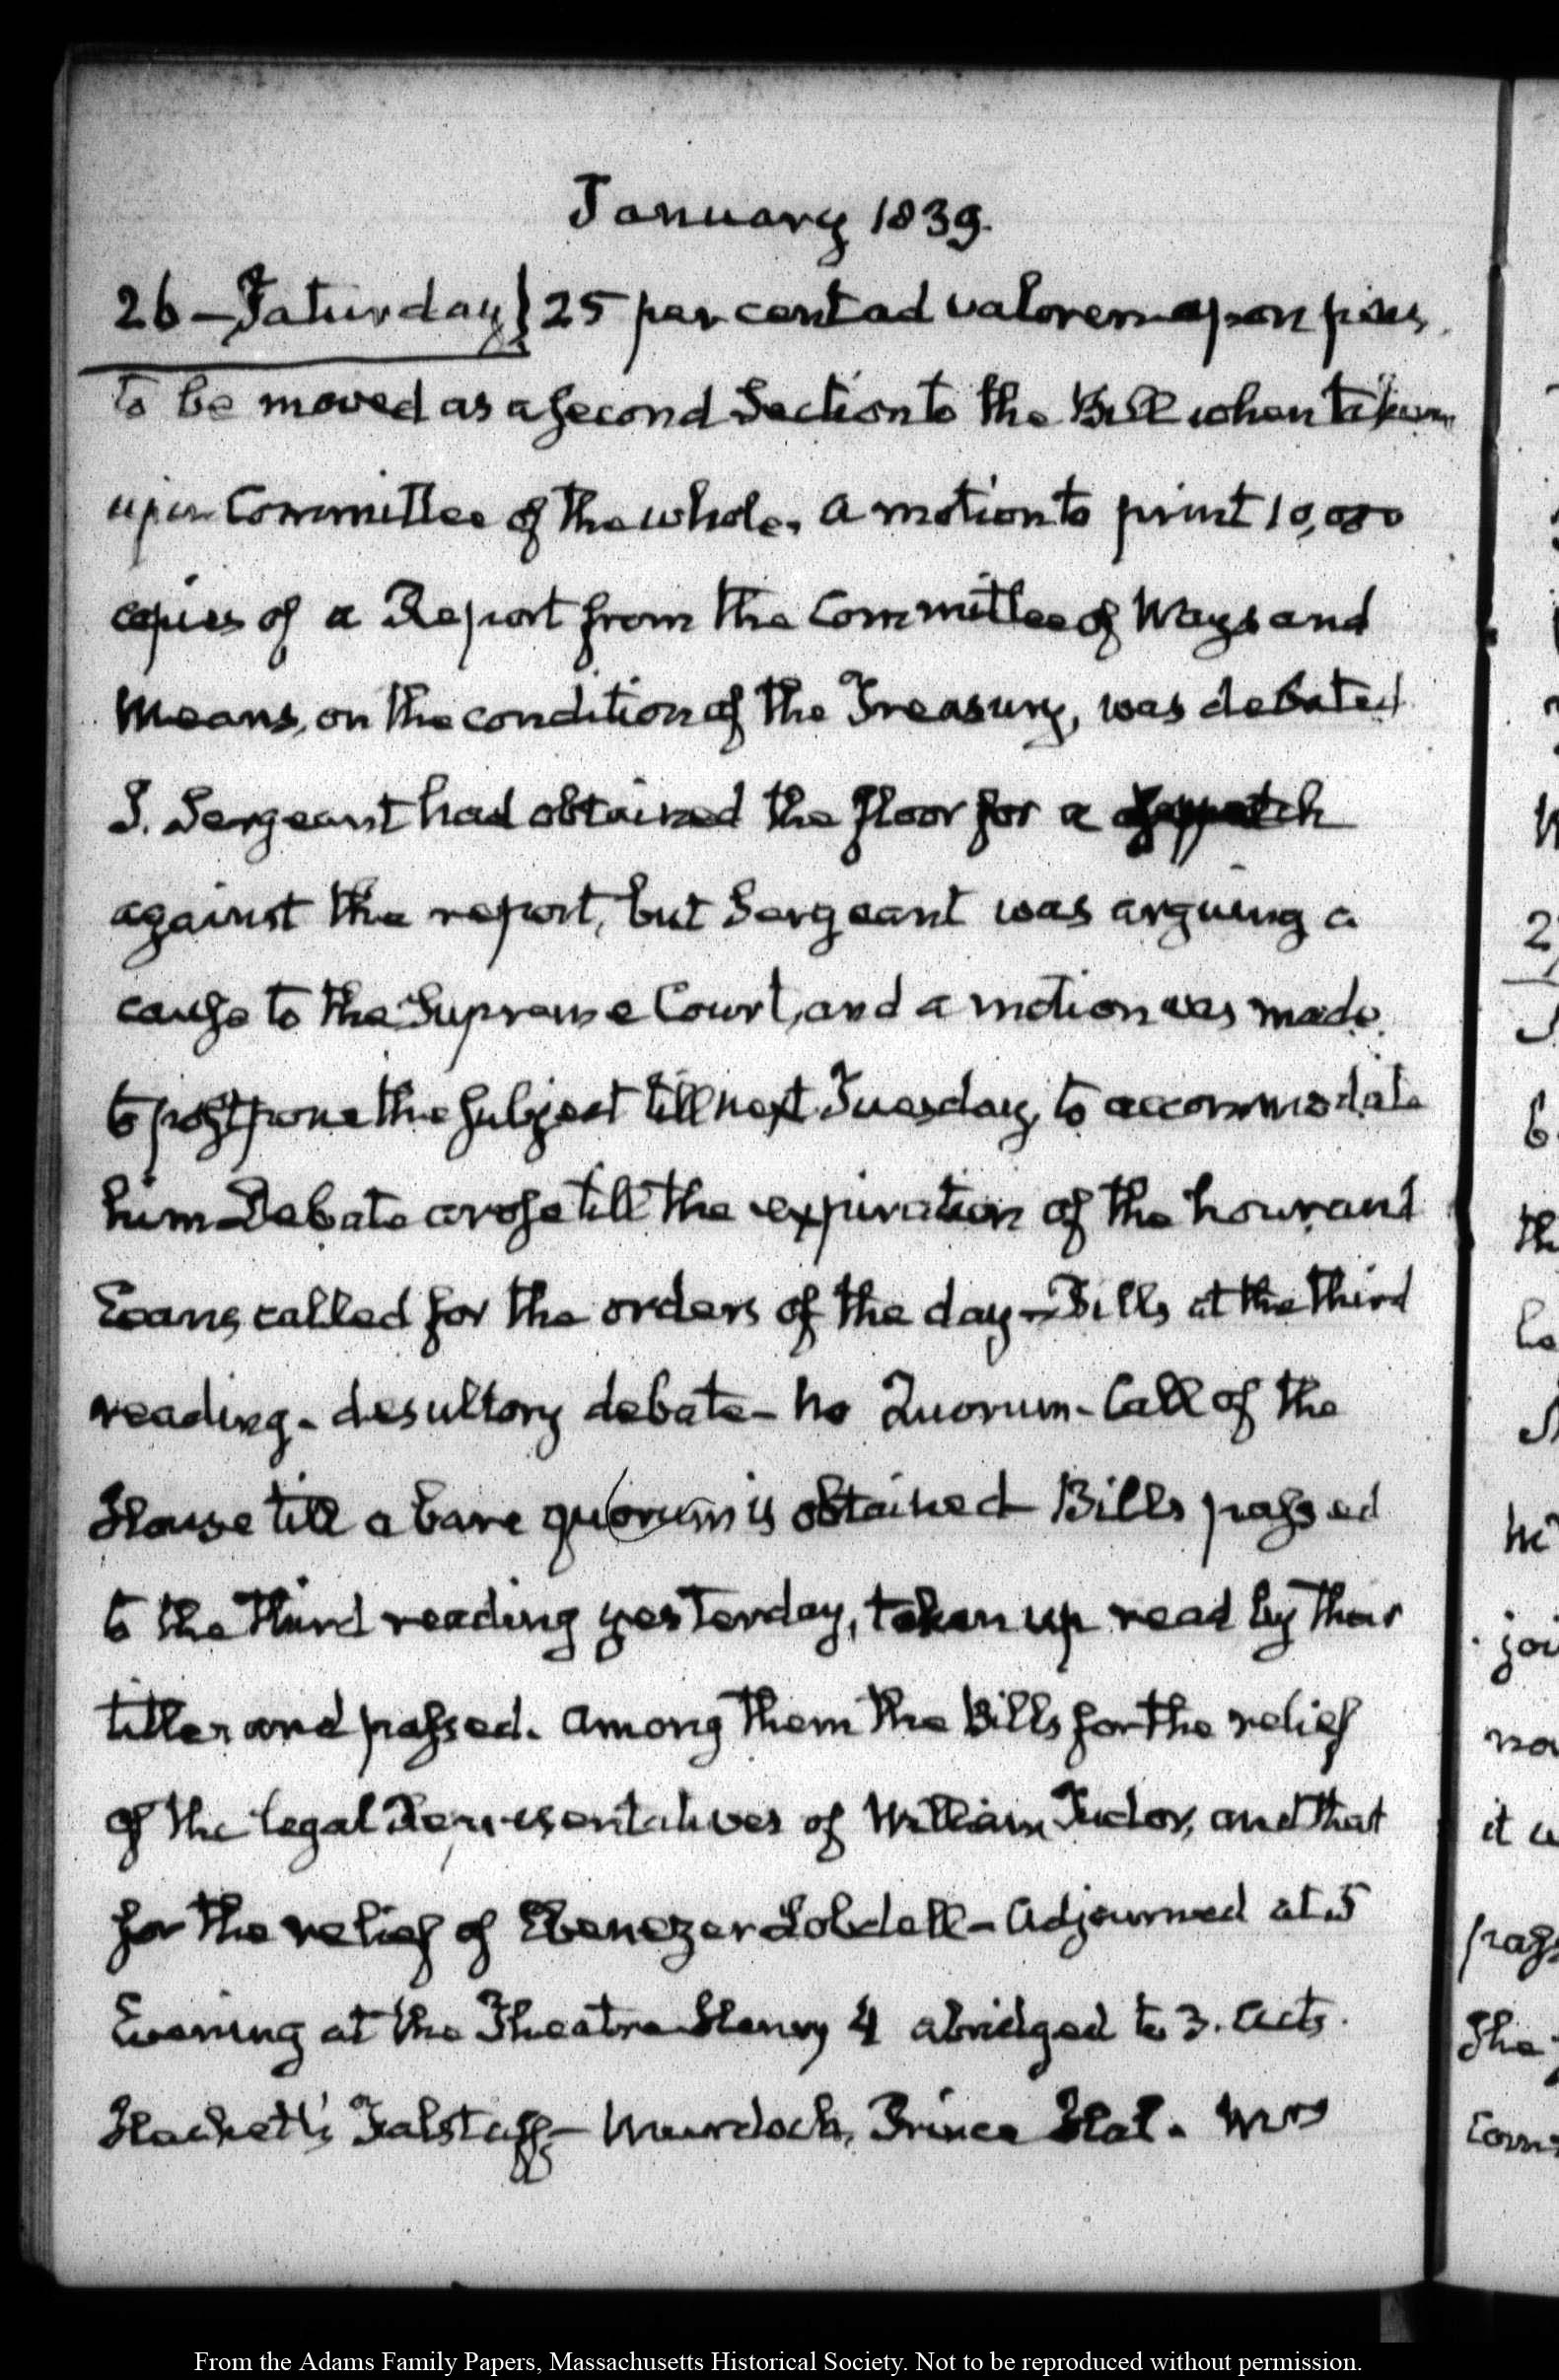 January 1839.
26 – Saturday} 25 per cent ad valorem upon pins
to be moved as a second Section to the Bill when taken
up in Committee of the whole. A motion to print 10,000
copies of a Report from the Committee of Ways and
Means, on the condition of the Treasury, was debated
J. Sergeant had obtained the floor for a
against the report, but Sergeant was arguing a
cause to the Supreme Court, and a motion was made
to postpone the subject till next Tuesday, to accommodate
him – Debate arose till the expiration of the hour and
Evans called for the orders of the day – Bills at the third
reading – desultory debate – no Quorum – Call of the
House till a bare quorum is obtained Bills passed
to the third reading yesterday, taken up read by their
titles and passed. Among them the Bills for the relief
of the legal Representatives of William Tudor, and that
for the relief of Ebenezer Lobdell – Adjourned at 5
Evening at the Theatre Henry 4 abridged to 3. Acts.
Hackett's Falstaff – Murdoch, Prince Hal. Mrs
From the Adams Family Papers, Massachusetts Historical Society. Not to be reproduced without permission.